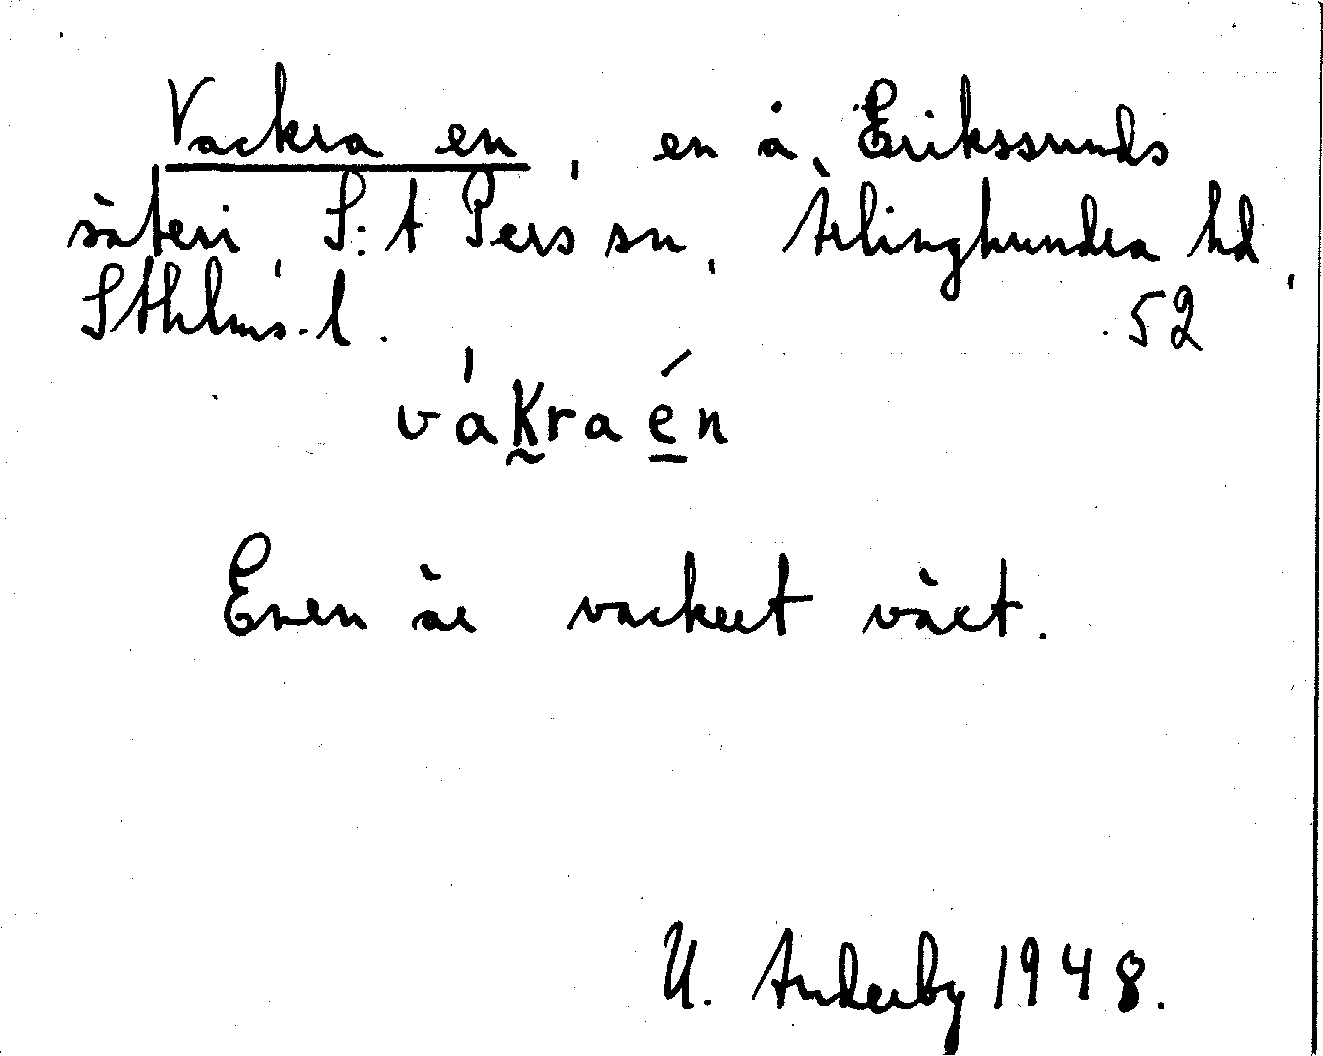 Vackra en, en å, Erikssunds
säteri, S:t Pers sn, Ärlinghundra hd,
Sthlms. l. 52
vákraén
Enen är vackert växt.
U. Anderby 1948.